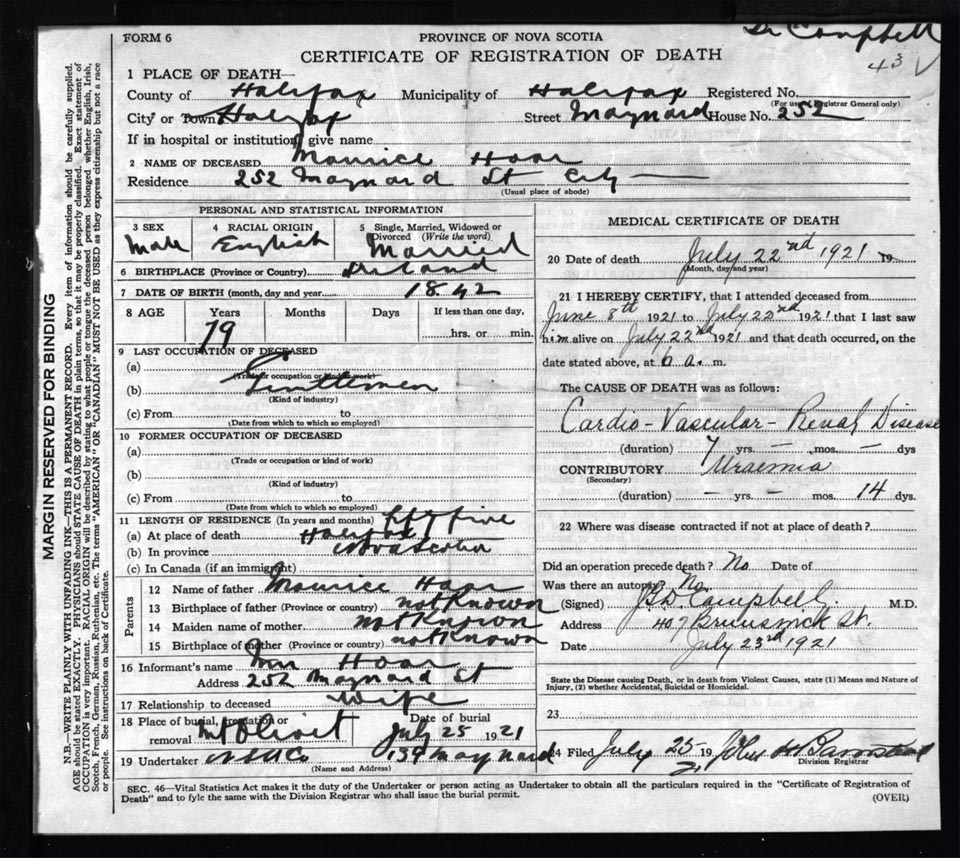 Dr Campbell
43
FORM 6
PROVINCE OF NOVA SCOTIA
CERTIFICATE OF REGISTRATION OF DEATH
MARGIN RESERVED FOR BINDING
N.B.—WRITE PLAINLY WITH UNFADING INK—THIS IS A PERMANENT RECORD. Every item of information should be carefully supplied.
AGE should be stated EXACTLY. PHYSICIANS should STATE CAUSE OF DEATH in plain terms, so that it may be properly classified. Exact statement of
OCCUPATION is very important. RACIAL ORIGIN will be described by stating to what people or tongue the deceased person belonged whether English, Irish,
Scotch, French, German, Russian, Ruthenian, etc. The terms "AMERICAN" OR "CANADIAN" MUST NOT BE USED as they express citizenship but not a race
or people. See instructions on back of Certificate.
1 PLACE OF DEATH—
County of Halifax Municipality of Halifax Registered No.
(For use of Registrar General only)
City or Town Halifax Street Maynard House No. 252
If in hospital or institution, give name
2 NAME OF DECEASED Maurice Hoar
Residence 252 Maynard St City
(Usual place of abode)
PERSONAL AND STATISTICAL INFORMATION
3 SEX Male
4 RACIAL ORIGIN English
5 Single, Married, Widowed or Divorced (Write the word) Married
6 BIRTHPLACE (Province or Country) Ireland
7 DATE OF BIRTH (month, day and year) 1842
8 AGE Years 79 Months Days If less than one day, hrs. or min.
9 LAST OCCUPATION OF DECEASED
(a)
(Trade or occupation or kind of work)
(b) Gentlemen
(Kind of industry)
(c) From to
(Date from which to which so employed)
10 FORMER OCCUPATION OF DECEASED
(a)
(Trade or occupation or kind of work)
(b)
(Kind of industry)
(c) From to
(Date from which to which so employed)
11 LENGTH OF RESIDENCE (In years and months) fifty five
(a) At place of death Halifax
(b) In province Nova Scotia
(c) In Canada (if an immigrant)
Parents
12 Name of father Maurice Hoar
13 Birthplace of father (Province or country) not Known
14 Maiden name of mother not Known
15 Birthplace of mother (Province or country) not Known
16 Informant's name Mrs Hoar
Address 252 Maynard St
17 Relationship to deceased Wife
18 Place of burial, cremation or removal Mt Olivet Date of burial July 25 1921
19 Undertaker 139 Maynard
(Name and Address)
MEDICAL CERTIFICATE OF DEATH
20 Date of death July 22nd 1921 19
(Month, day and year)
21 I HEREBY CERTIFY, that I attended deceased from
June 8th 1921 to July 22nd 1921 that I last saw
him alive on July 22nd 1921 and that death occurred, on the
date stated above, at a. m.
The CAUSE OF DEATH was as follows:
Cardio-Vascular-Renal Disease
(duration) 7 yrs. — mos. — dys
CONTRIBUTORY Uraemia
(Secondary)
(duration) — yrs. — mos. 14 dys.
22 Where was disease contracted if not at place of death?
Did an operation precede death? No Date of
Was there an autopsy? No
(Signed) Campbell M.D.
Address 407 Brunswick St.
Date July 23rd 1921
State the Disease causing Death, or in death from Violent Causes, state (1) Means and Nature of
Injury, (2) whether Accidental, Suicidal or Homicidal.
23
24 Filed July 25 19 21 John
Division Registrar
SEC. 46—Vital Statistics Act makes it the duty of the Undertaker or person acting as Undertaker to obtain all the particulars required in the "Certificate of Registration of
Death" and to fyle the same with the Division Registrar who shall issue the burial permit.
(OVER)